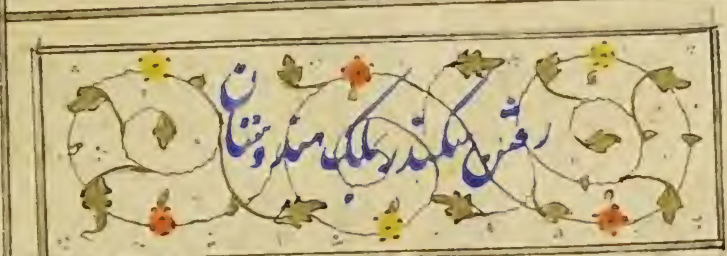 رفتن سکندر بملک هندوستان